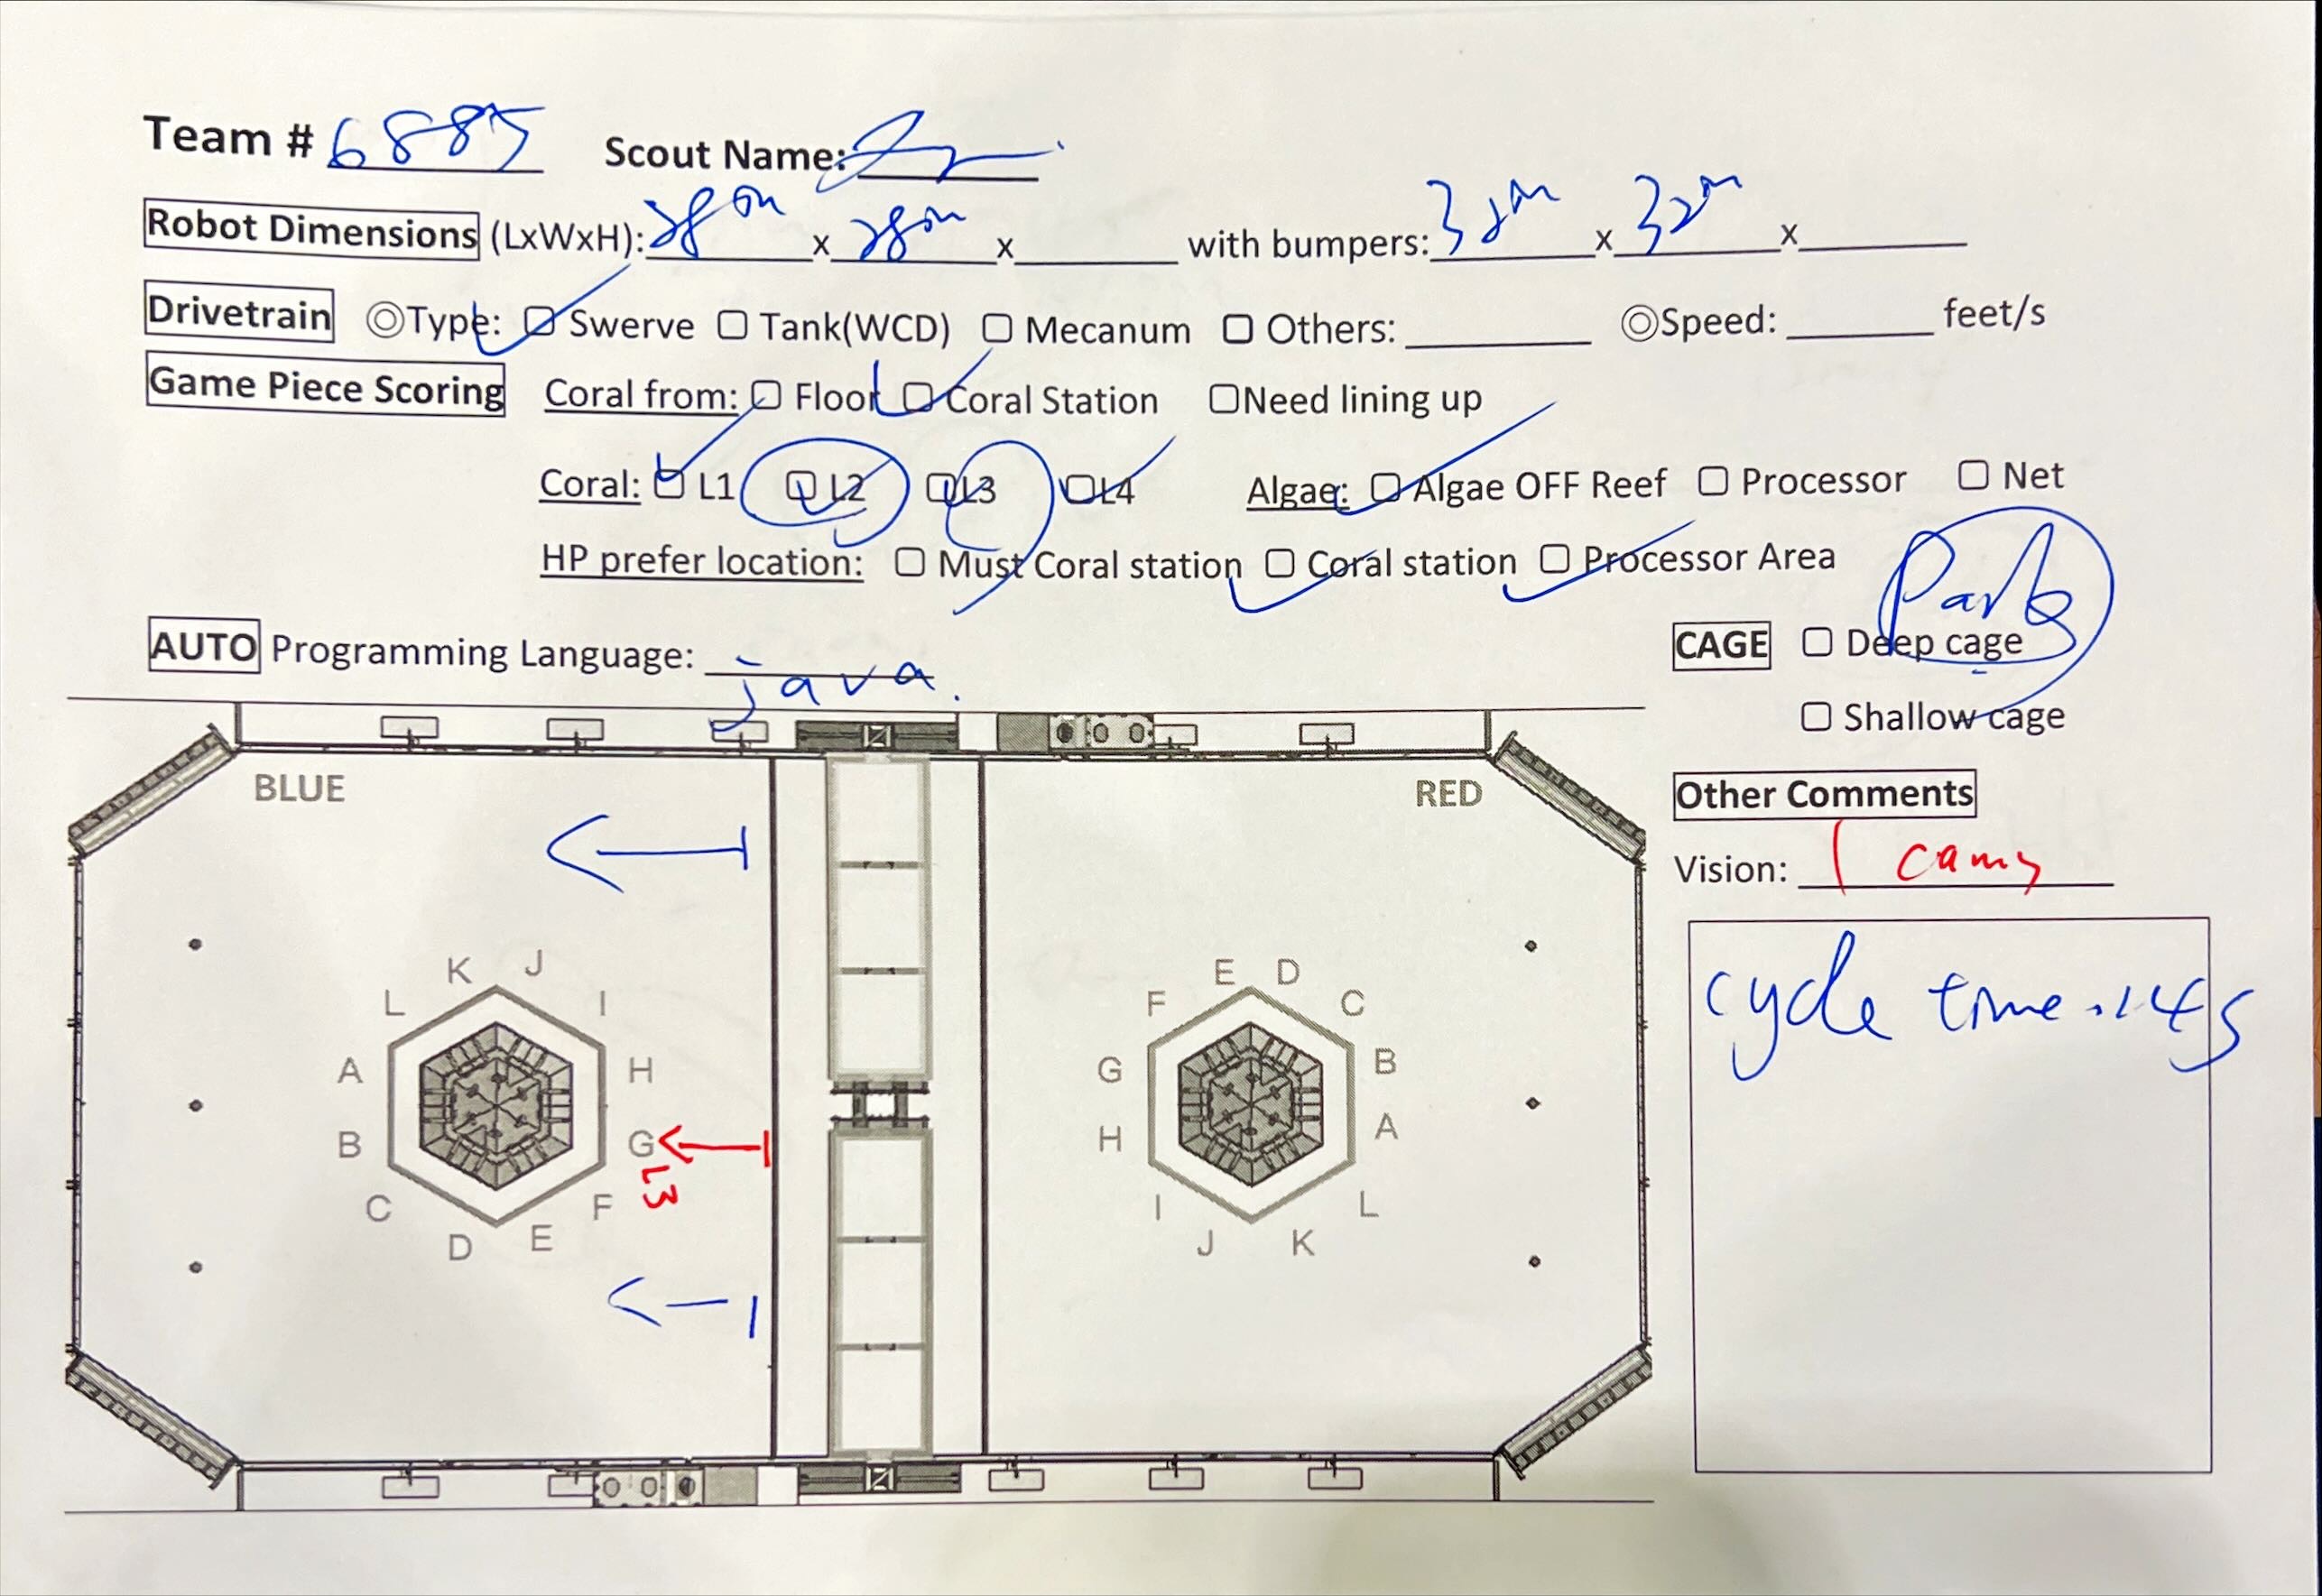 Team # 6885 Scout Name:
Robot Dimensions (LxWxH): x x with bumpers: x x
Drivetrain ◎Type: ☑ Swerve ☐ Tank(WCD) ☐ Mecanum ☐ Others: ◎Speed: feet/s
Game Piece Scoring Coral from: ☐ Floor ☑ Coral Station ☐Need lining up
Coral: ☑ L1 ☑ L2 ☑ L3 ☑ L4 Algae: ☑ Algae OFF Reef ☐ Processor ☐ Net
HP prefer location: ☐ Must Coral station ☑ Coral station ☑ Processor Area
Park
AUTO Programming Language: java.
CAGE ☐ Deep cage
☐ Shallow cage
BLUE
RED
Other Comments
Vision: 1 cams
cycle time 14s
K J
L I
A H
B G
L3
C F
D E
E D
F C
G B
H A
I L
J K